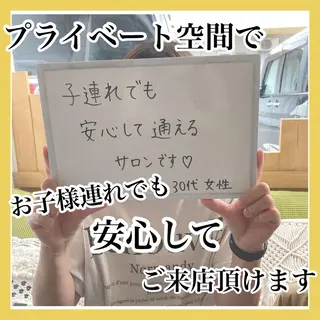 プライベート空間で
子連れでも
安心して通える
サロンです♡
30代 女性
お子様連れでも
安心して
Normandy
ご来店頂けます